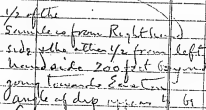 1/2 of the
Sample is from Right hand
side & the other 1/2 from left
hand side 200 feet beyond
going towards East
angle of dip 65